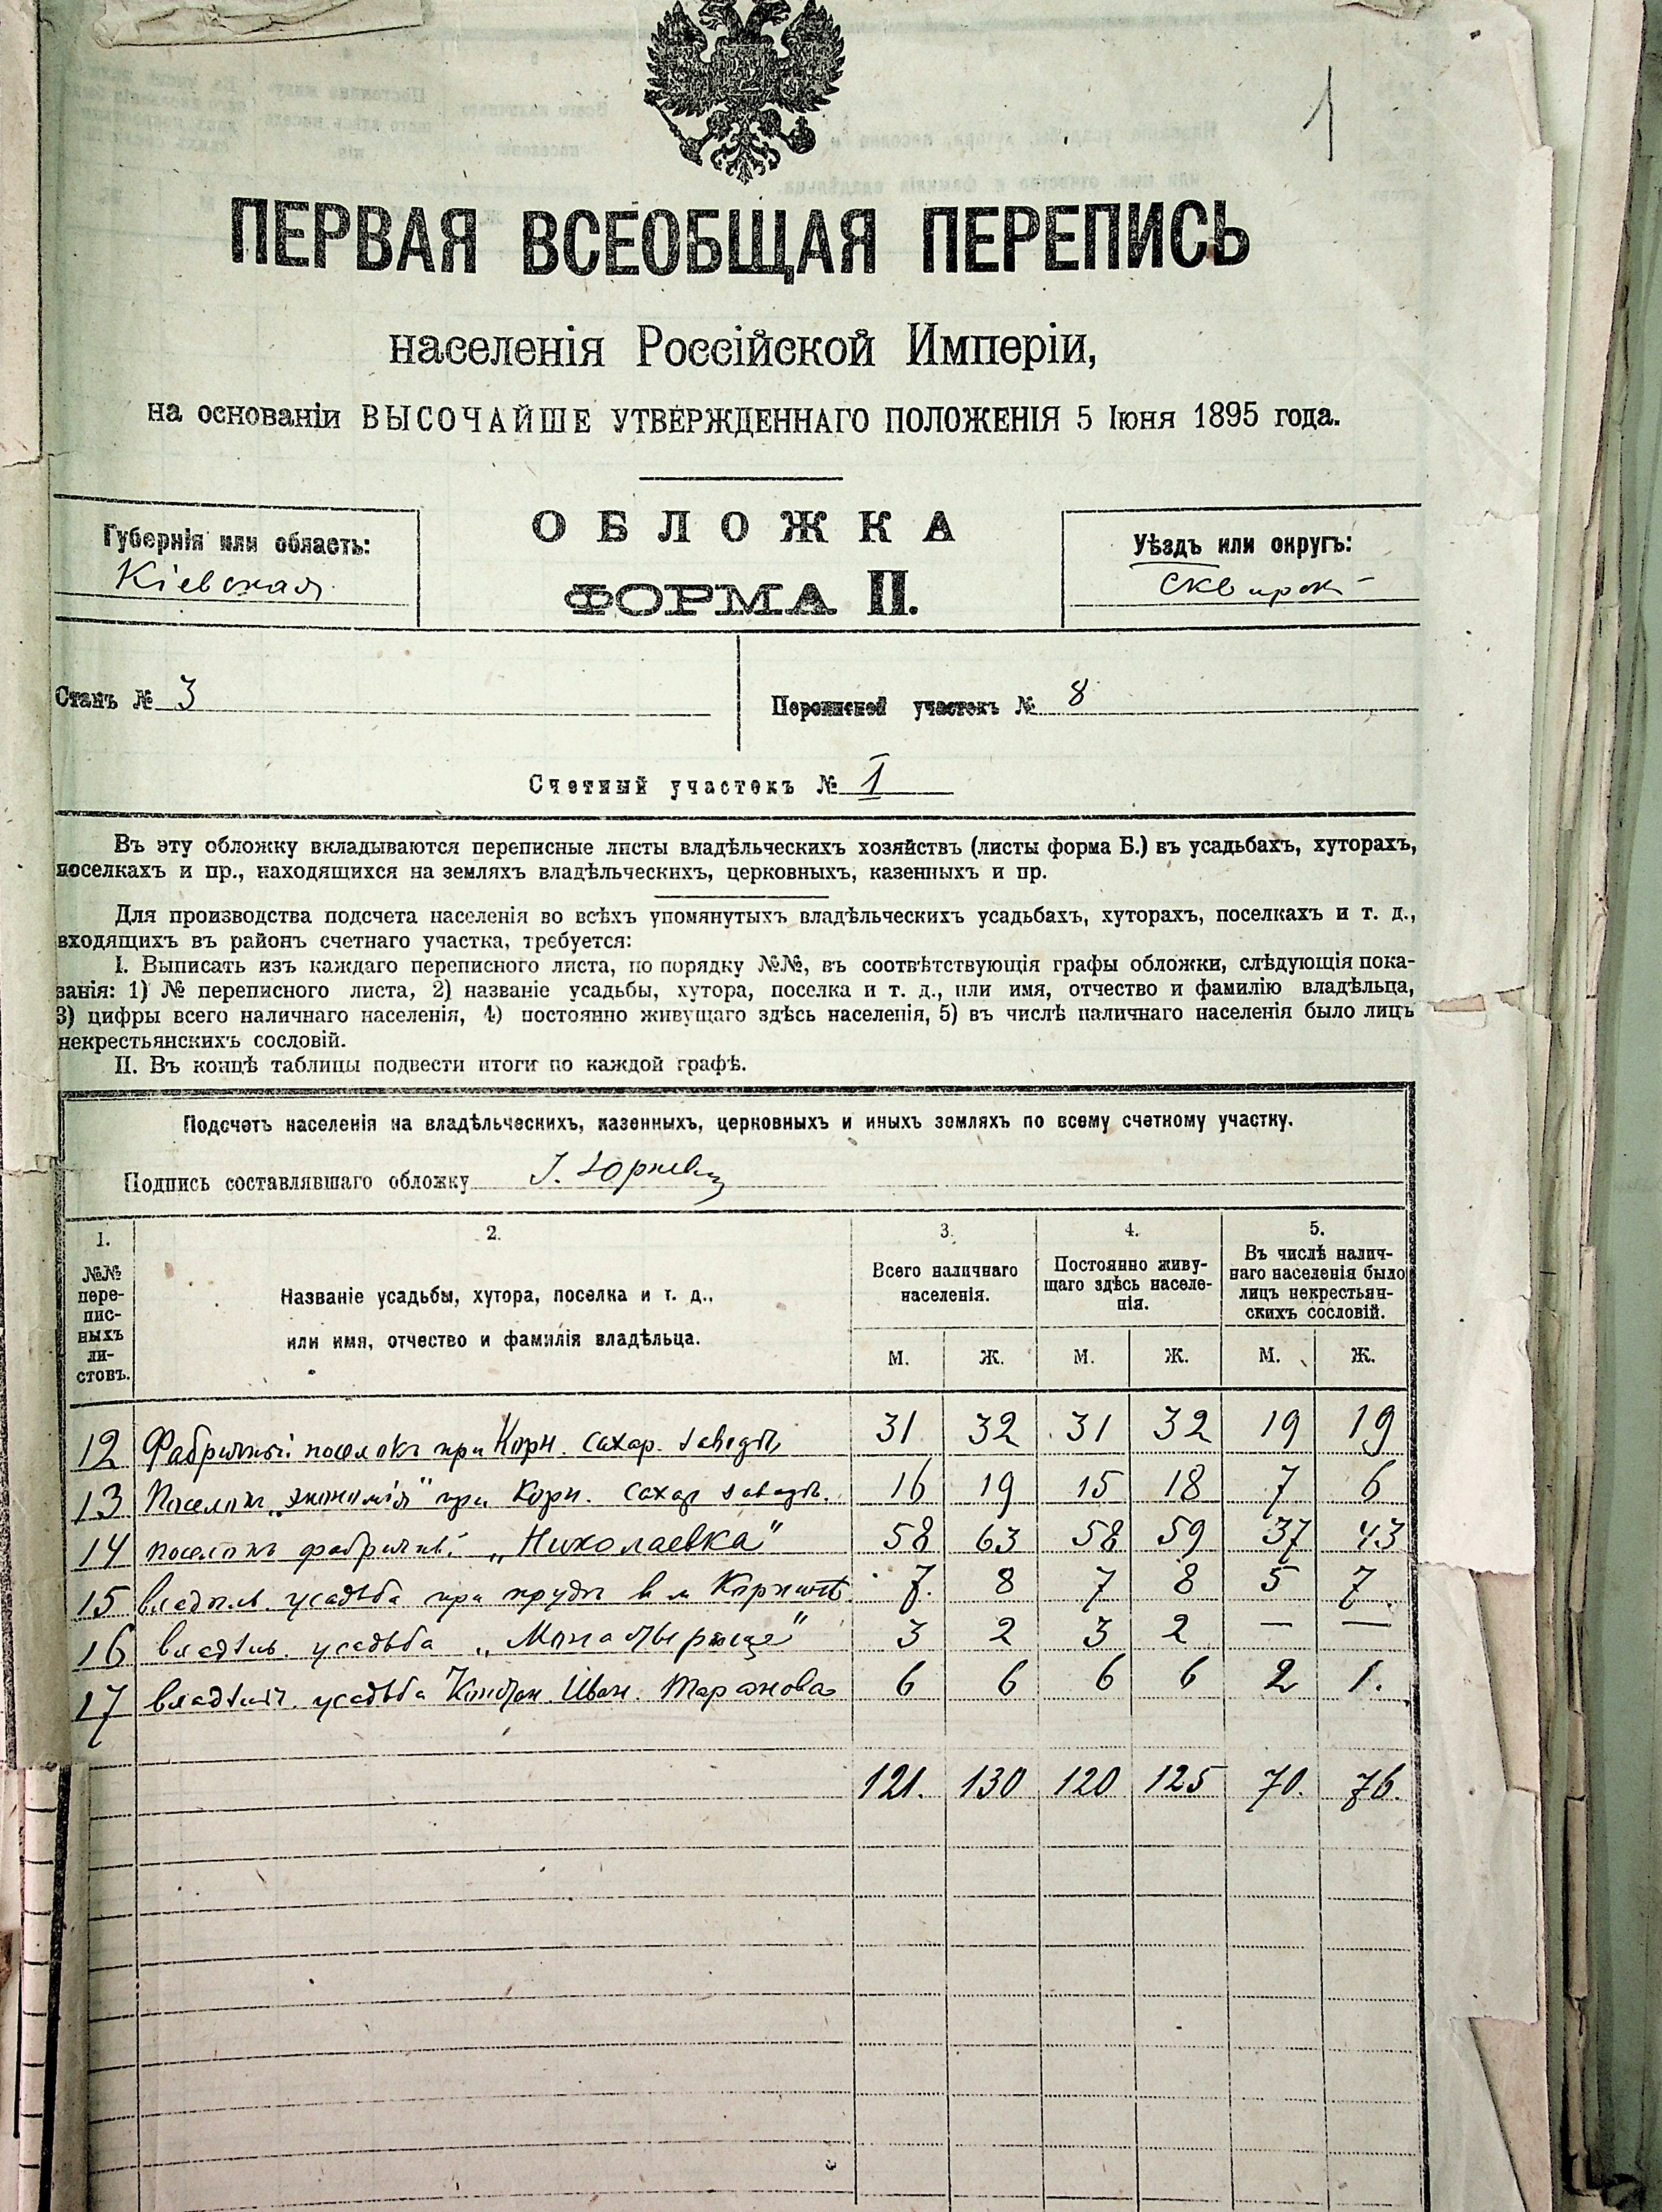 1
ПЕРВАЯ ВСЕОБЩАЯ ПЕРЕПИСЬ
населенія Россійской Имперіи,
на основаніи ВЫСОЧАЙШЕ УТВЕРЖДЕННАГО ПОЛОЖЕНІЯ 5 Іюня 1895 года.
Губернія или область:
Кіевская
ОБЛОЖКА
ФОРМА II.
Уѣздъ или округъ:
Сквирск
Станъ № 3
Переписной участокъ № 8
Счетный участокъ № I
Въ эту обложку вкладываются переписные листы владѣльческихъ хозяйствъ (листы форма Б.) въ усадьбахъ, хуторахъ,
поселкахъ и пр., находящихся на земляхъ владѣльческихъ, церковныхъ, казенныхъ и пр.
Для производства подсчета населенія во всѣхъ упомянутыхъ владѣльческихъ усадьбахъ, хуторахъ, поселкахъ и т. д.,
входящихъ въ районъ счетнаго участка, требуется:
I. Выписать изъ каждаго переписного листа, по порядку №№, въ соотвѣтствующія графы обложки, слѣдующія пока-
занія: 1) № переписного листа, 2) названіе усадьбы, хутора, поселка и т. д., или имя, отчество и фамилію владѣльца,
3) цифры всего наличнаго населенія, 4) постоянно живущаго здѣсь населенія, 5) въ числѣ наличнаго населенія было лицъ
некрестьянскихъ сословій.
II. Въ концѣ таблицы подвести итоги по каждой графѣ.
Подсчетъ населенія на владѣльческихъ, казенныхъ, церковныхъ и иныхъ земляхъ по всему счетному участку.
Подпись составлявшаго обложку
1.
№№ пере-
пис-
ныхъ
ли-
стовъ.
2.
Названіе усадьбы, хутора, поселка и т. д.,
или имя, отчество и фамилія владѣльца.
3.
Всего наличнаго
населенія.
4.
Постоянно живу-
щаго здѣсь населе-
нія.
5.
Въ числѣ налич-
наго населенія было
лицъ некрестьян-
скихъ сословій.
М. Ж. М. Ж. М. Ж.
12 Фабричный поселокъ при Корн. сахар. заводѣ 31 32 31 32 19 19
13 Поселокъ „экономія" при Корн. сахар заводѣ. 16 19 15 18 7 6
14 поселокъ фабричный „Николаевка" 58 63 58 59 37 43
15 владѣл. усадьба при прудѣ в м Корнинѣ 7. 8 7 8 5 7
16 владѣл. усадьба 3 2 3 2 — —
17 усадьба Иван. Таранова 6 6 6 6 2 1.
121. 130 120 125 70. 76.